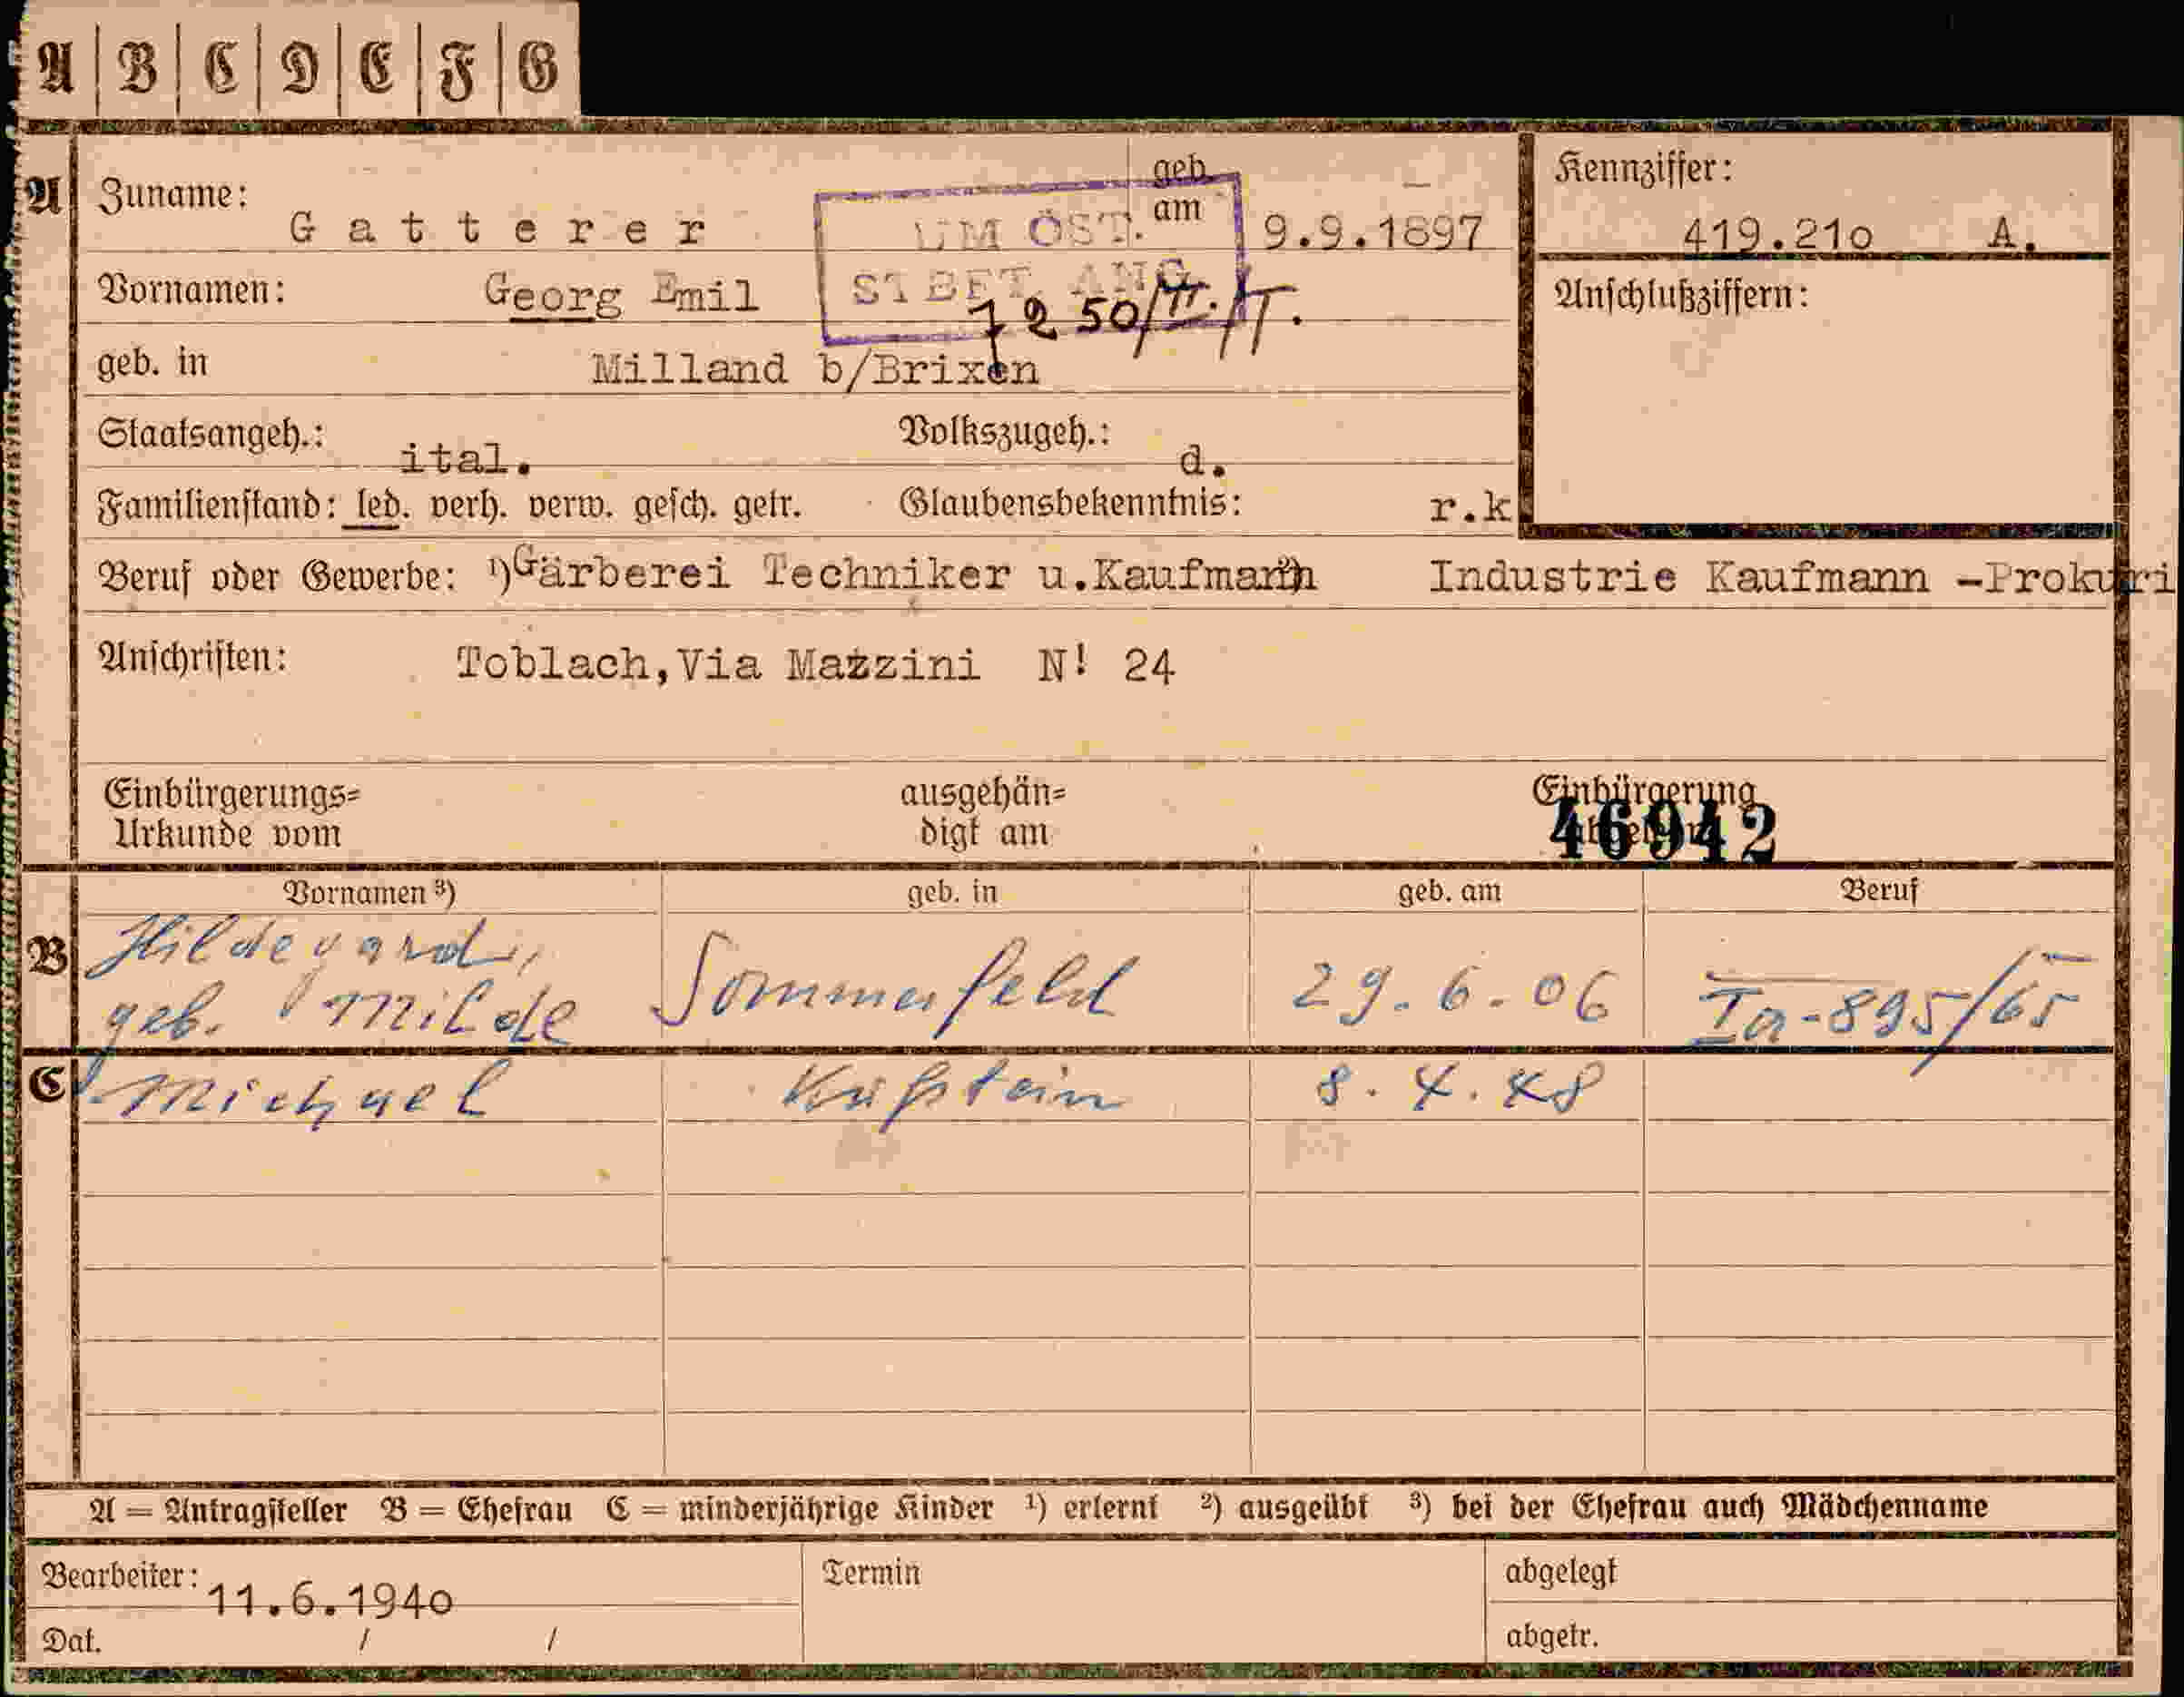 A | B | C | D | E | F | G
A Zuname: G a t t e r e r geb. am 9.9.1897
Kennziffer: 419.21o A.
UM ÖST.
ST BET. ANG.
7250/II./T.
Vornamen: Georg Emil
Anschlußziffern:
geb. in Milland b/Brixen
Staatsangeh.: ital. Volkszugeh.: d.
Familienstand: led. verh. verw. gesch. getr. Glaubensbekenntnis: r.k
Beruf oder Gewerbe: ¹)Gärberei Techniker u.Kaufmann ²) Industrie Kaufmann -Prokuri
Anschriften: Toblach,Via Mazzini N! 24
Einbürgerungs= ausgehän= Einbürgerung
Urkunde vom digt am 46942
Vornamen ³) geb. in geb. am Beruf
B Hildegard,
geb. Milde Sommerfeld 29.6.06 Ia-895/65
C Michael Kufstein 8.4.48
A = Antragsteller B = Ehefrau C = minderjährige Kinder ¹) erlernt ²) ausgeübt ³) bei der Ehefrau auch Mädchenname
Bearbeiter: 11.6.194o Termin abgelegt
Dat. / / abgetr.